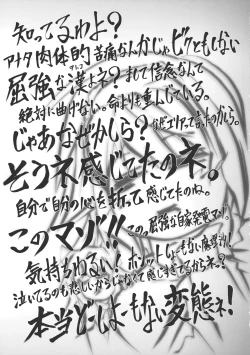 知ってるわよ?
アナタ肉体的苦痛なんかじゃビクともしない
屈強な漢よネ?まして信念なんて
絶対に曲げない。命よりも重んじている。
じゃあなぜかしら?なぜエリアって言ったのかしら。
そうネ感じてたのネ。
自分で自分の心を折って感じてたのね。
このマゾ!!この屈強な自家発電マゾ。
気持ちわるいくホントしょーもない
泣いてるのも悲しいからじゃなくて感じすぎてるからネ?
本当どーしよーもない変態ネ!